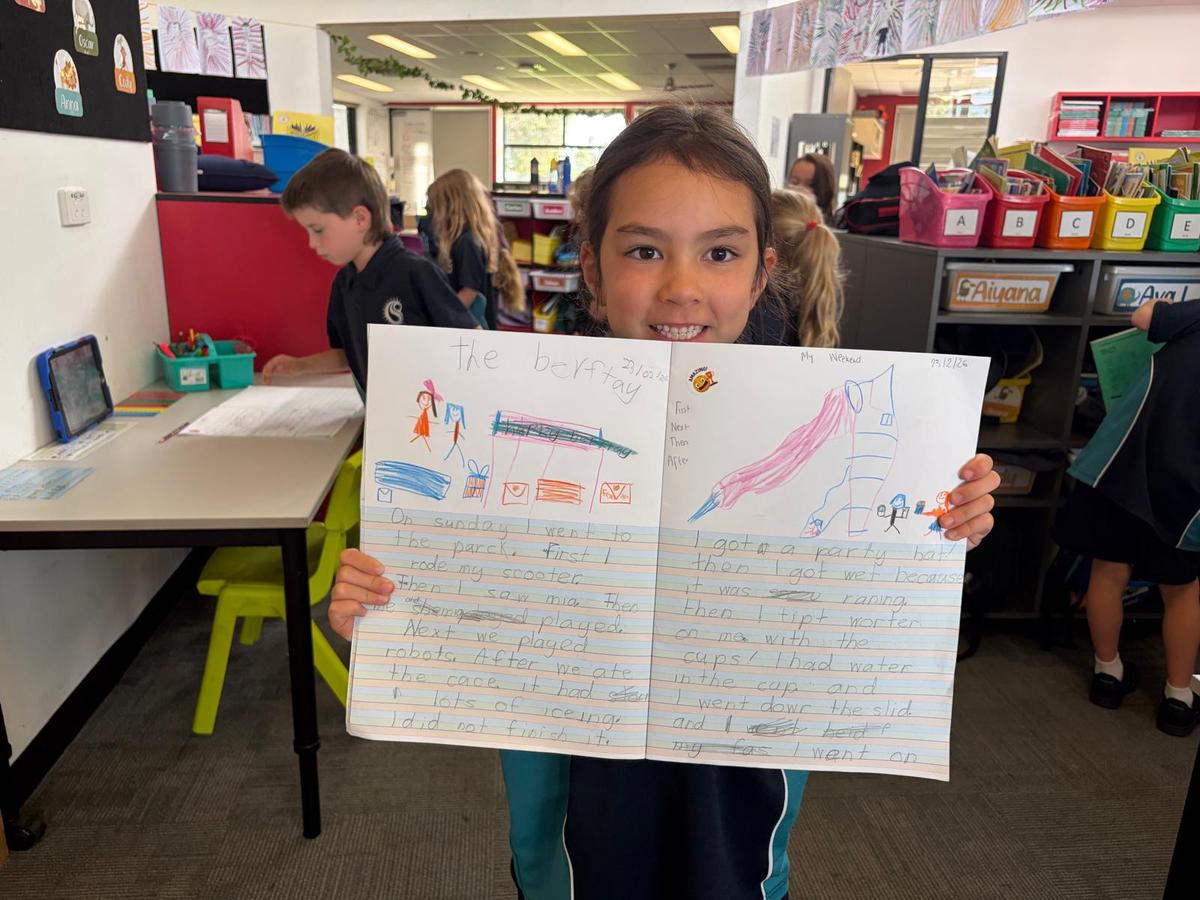 Oscar
Cody
Anna
the berftay
23/02/26
happy birthday
On sunday I went to
the parck. First I
rode my scooter
then I saw mia. Then
me and played.
Next we played
robots. After we ate
the cace. it had
lots of iceing.
I did not finish it.
My Weekend
23/2/26
AMAZING!
First
Next
Then
After
I got a party hat!
then I got wet because
it was raning.
then I tipt worter
on me with the
cups! I had water
in the cup and
I went down the slid
and I
my fas I went on
A
B
C
D
E
Aiyana